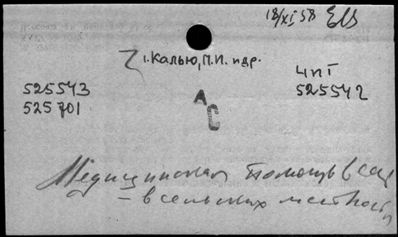 18/XI 58
1. Калью, П.И. и др.
525543
525701
525542
АС
Медицинская помощь в
– в сельских местностя